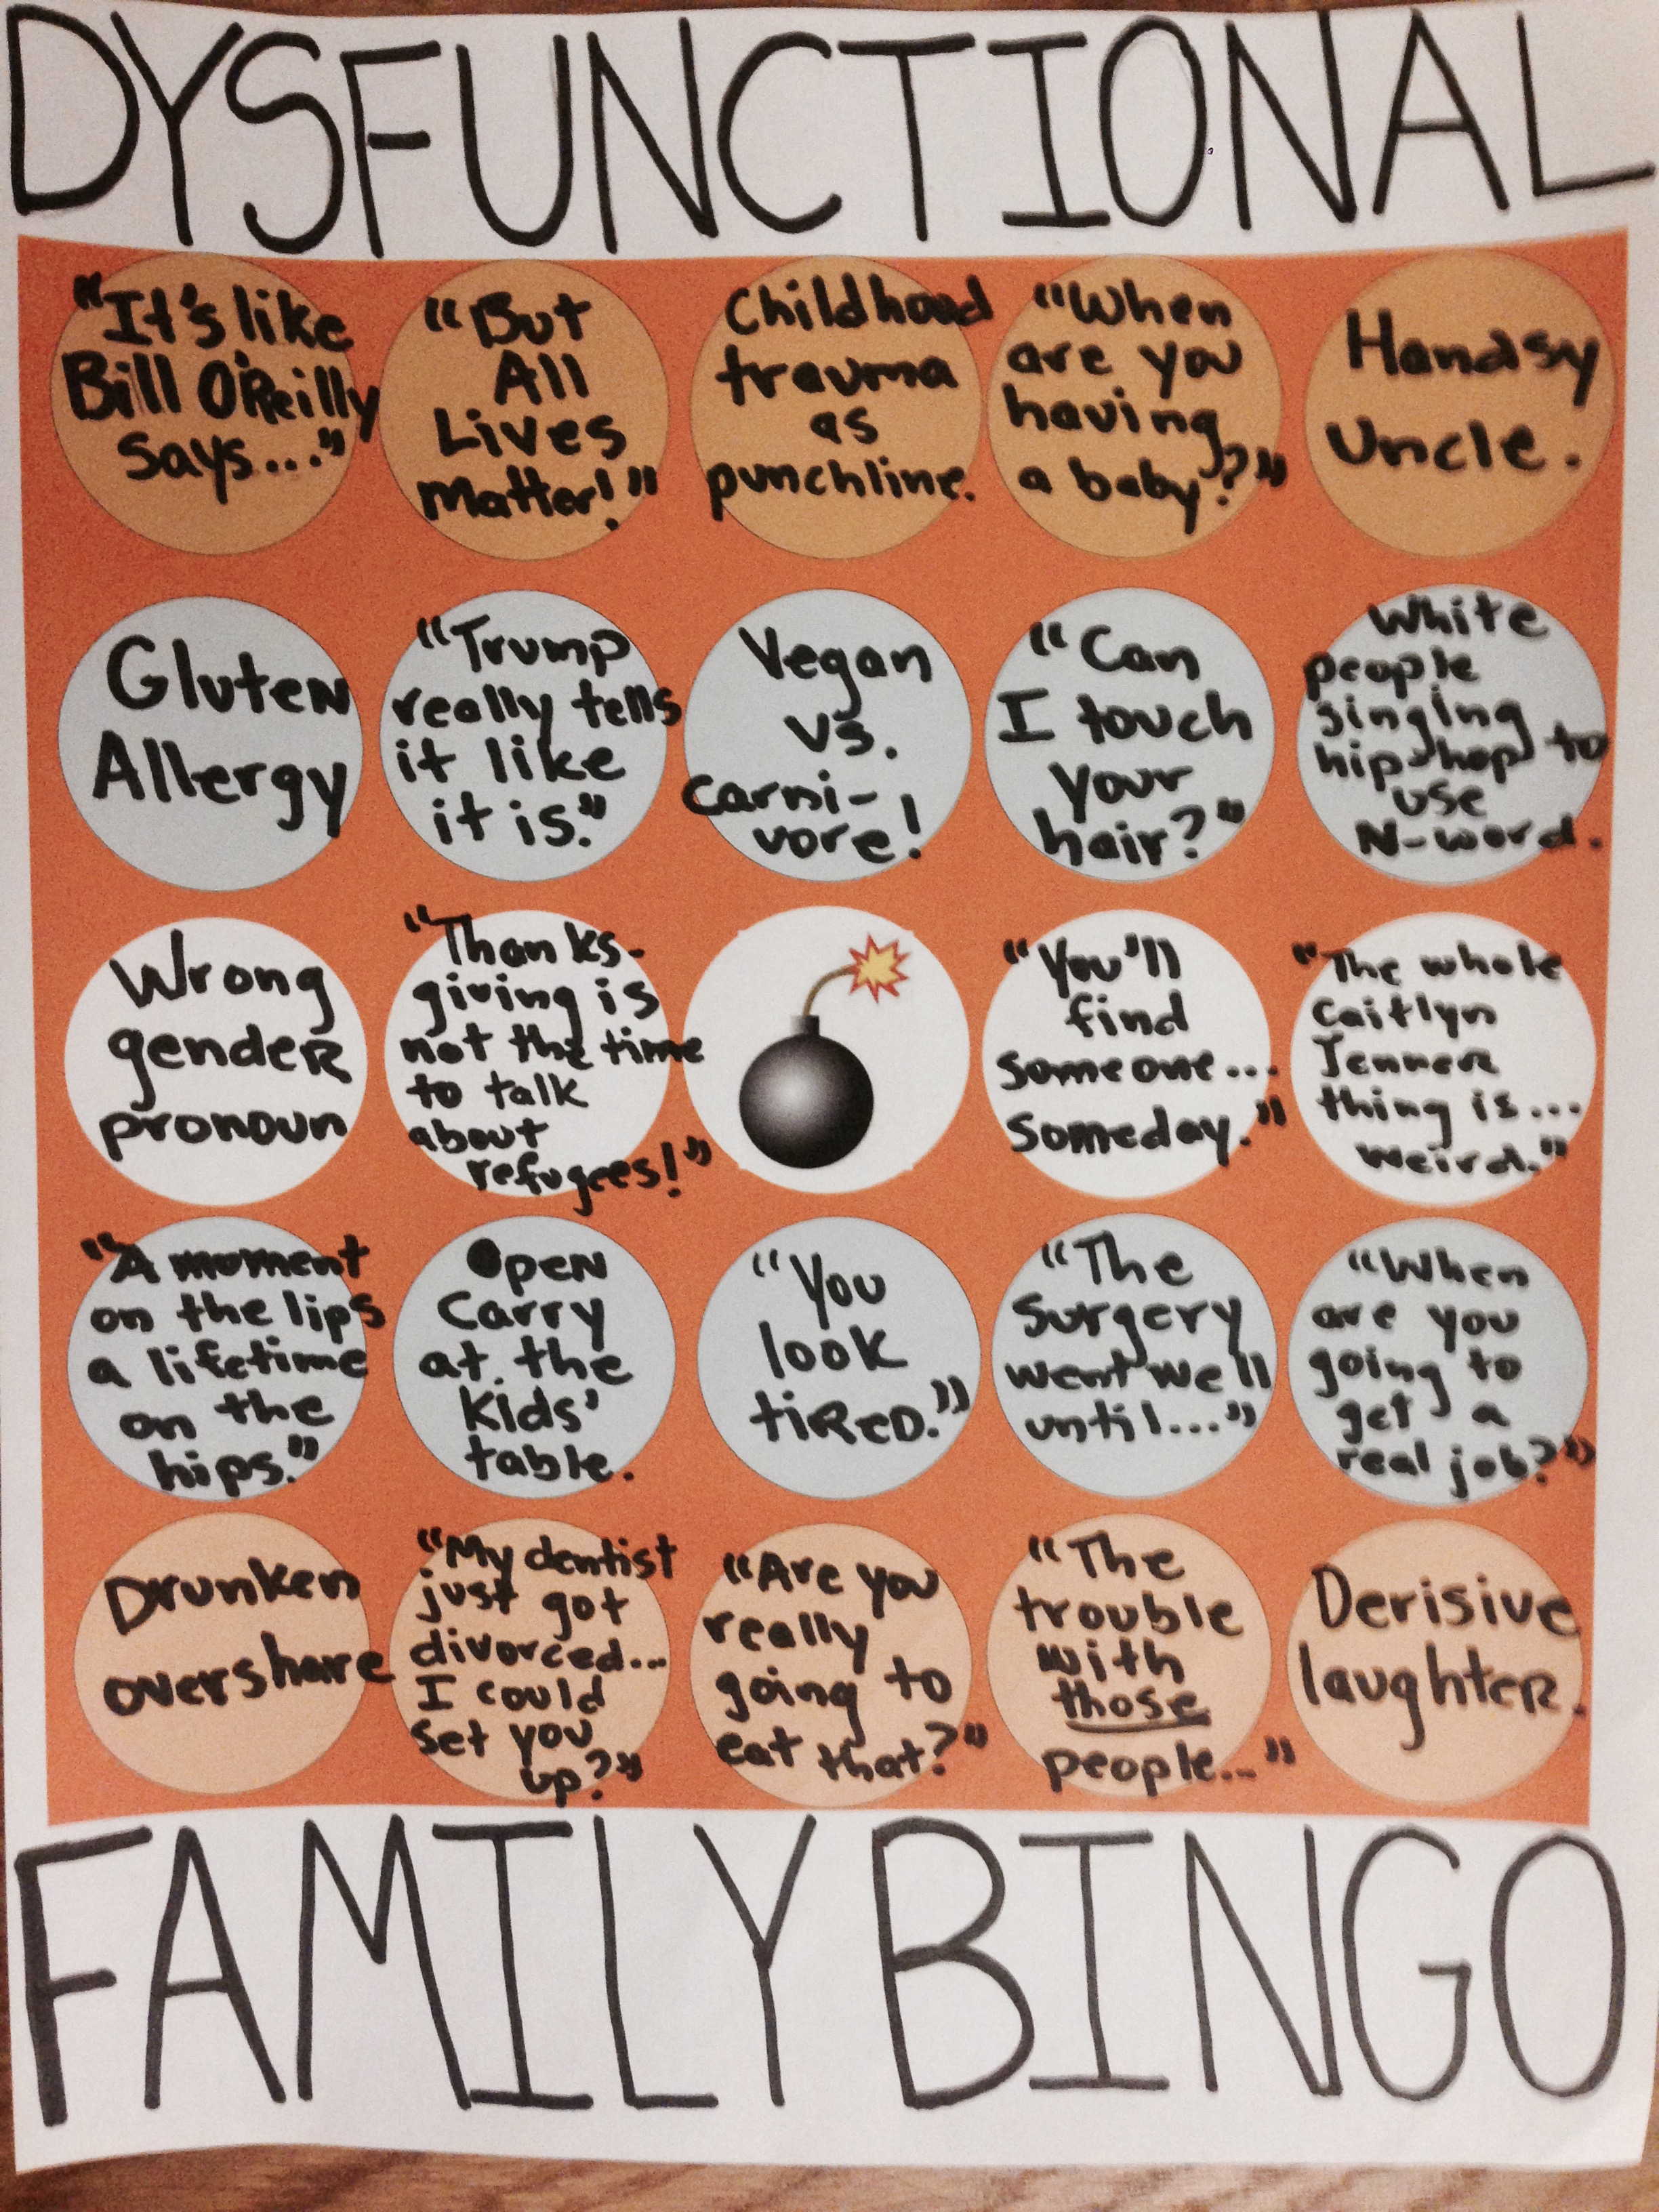 DYSFUNCTIONAL
"It's like
Bill O'Reilly
says..."
"But
All
Lives
Matter!"
Childhood
trauma
as
punchline.
"When
are you
having
a baby?"
Handsy
Uncle.
Gluten
Allergy
"Trump
really tells
it like
it is."
Vegan
vs.
Carni-
vore!
"Can
I touch
your
hair?"
White
people
singing
hip-hop to
use
N-word.
Wrong
gender
pronoun
"Thanks-
giving is
not the time
to talk
about
refugees!"
"You'll
find
someone...
Someday."
"The whole
Caitlyn
Jenner
thing is...
weird."
"A moment
on the lips
a lifetime
on the
hips."
Open
Carry
at the
Kids'
table.
"You
look
tired."
"The
Surgery
went well
until..."
"When
are you
going to
get a
real job?"
Drunken
overshare
"My dentist
just got
divorced...
I could
set you
up?"
"Are you
really
going to
eat that?"
"The
trouble
with
those
people..."
Derisive
laughter.
FAMILY BINGO